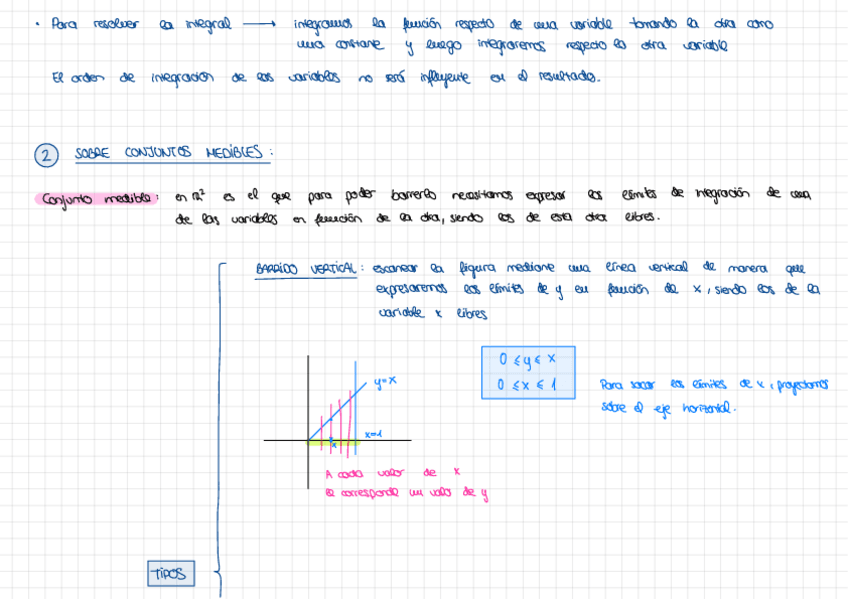 · Para resolver la integral → integramos la función respecto de una variable tomando la otra como
una constane y luego integraremos respecto la otra variable
El orden de integración de las variables no será influyente en el resultado.
2 SOBRE CONJUNTOS MEDIBLES:
Conjunto medible: en R² es el que para poder barrerlo necesitamos expresar los límites de inegración de una
de las variables en función de la otra, siendo los de esta otra libres.
BARRIDO VERTICAL: escanear la figura mediane una línea vertical de manera que
expresaremos los límites de y en función de x, siendo los de la
variable x libres
0 ≤ y ≤ x
0 ≤ x ≤ 1
Para sacar los límites de x, proyectamos
sobre el eje horizontal.
y=x
x=1
x
A cada valor de x
le corresponde un valor de y
TIPOS